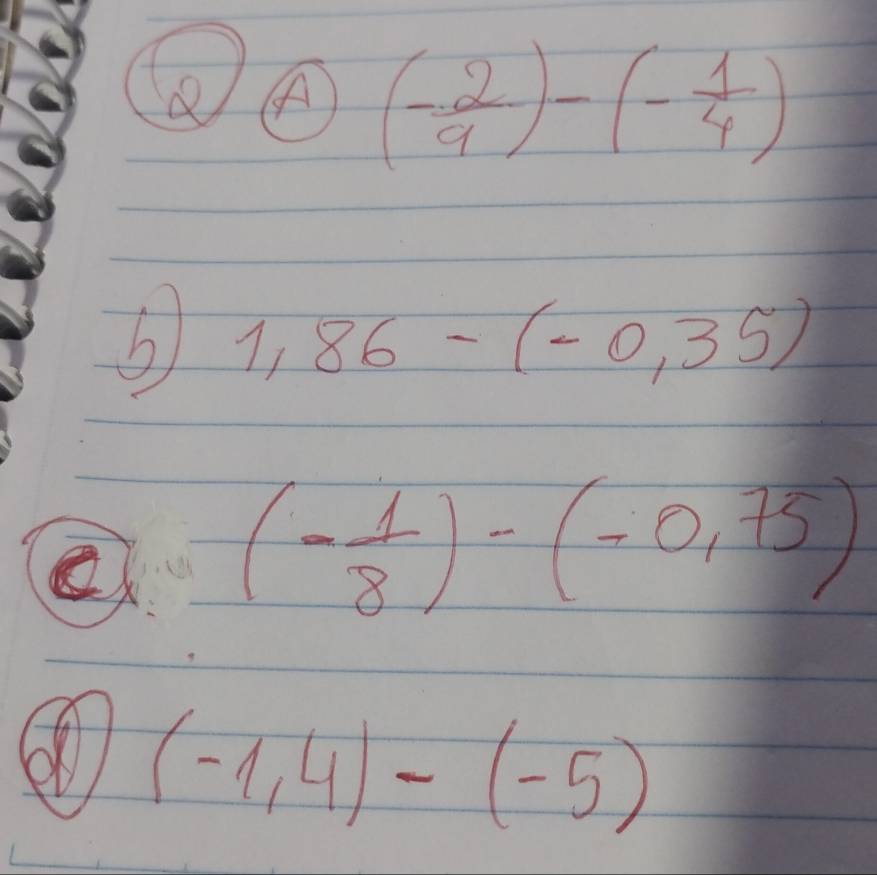 2 A (-2/9) - (-1/4)
b) 1,86 - (-0,35)
c (-1/8) - (-0,75)
d) (-1,4) - (-5)